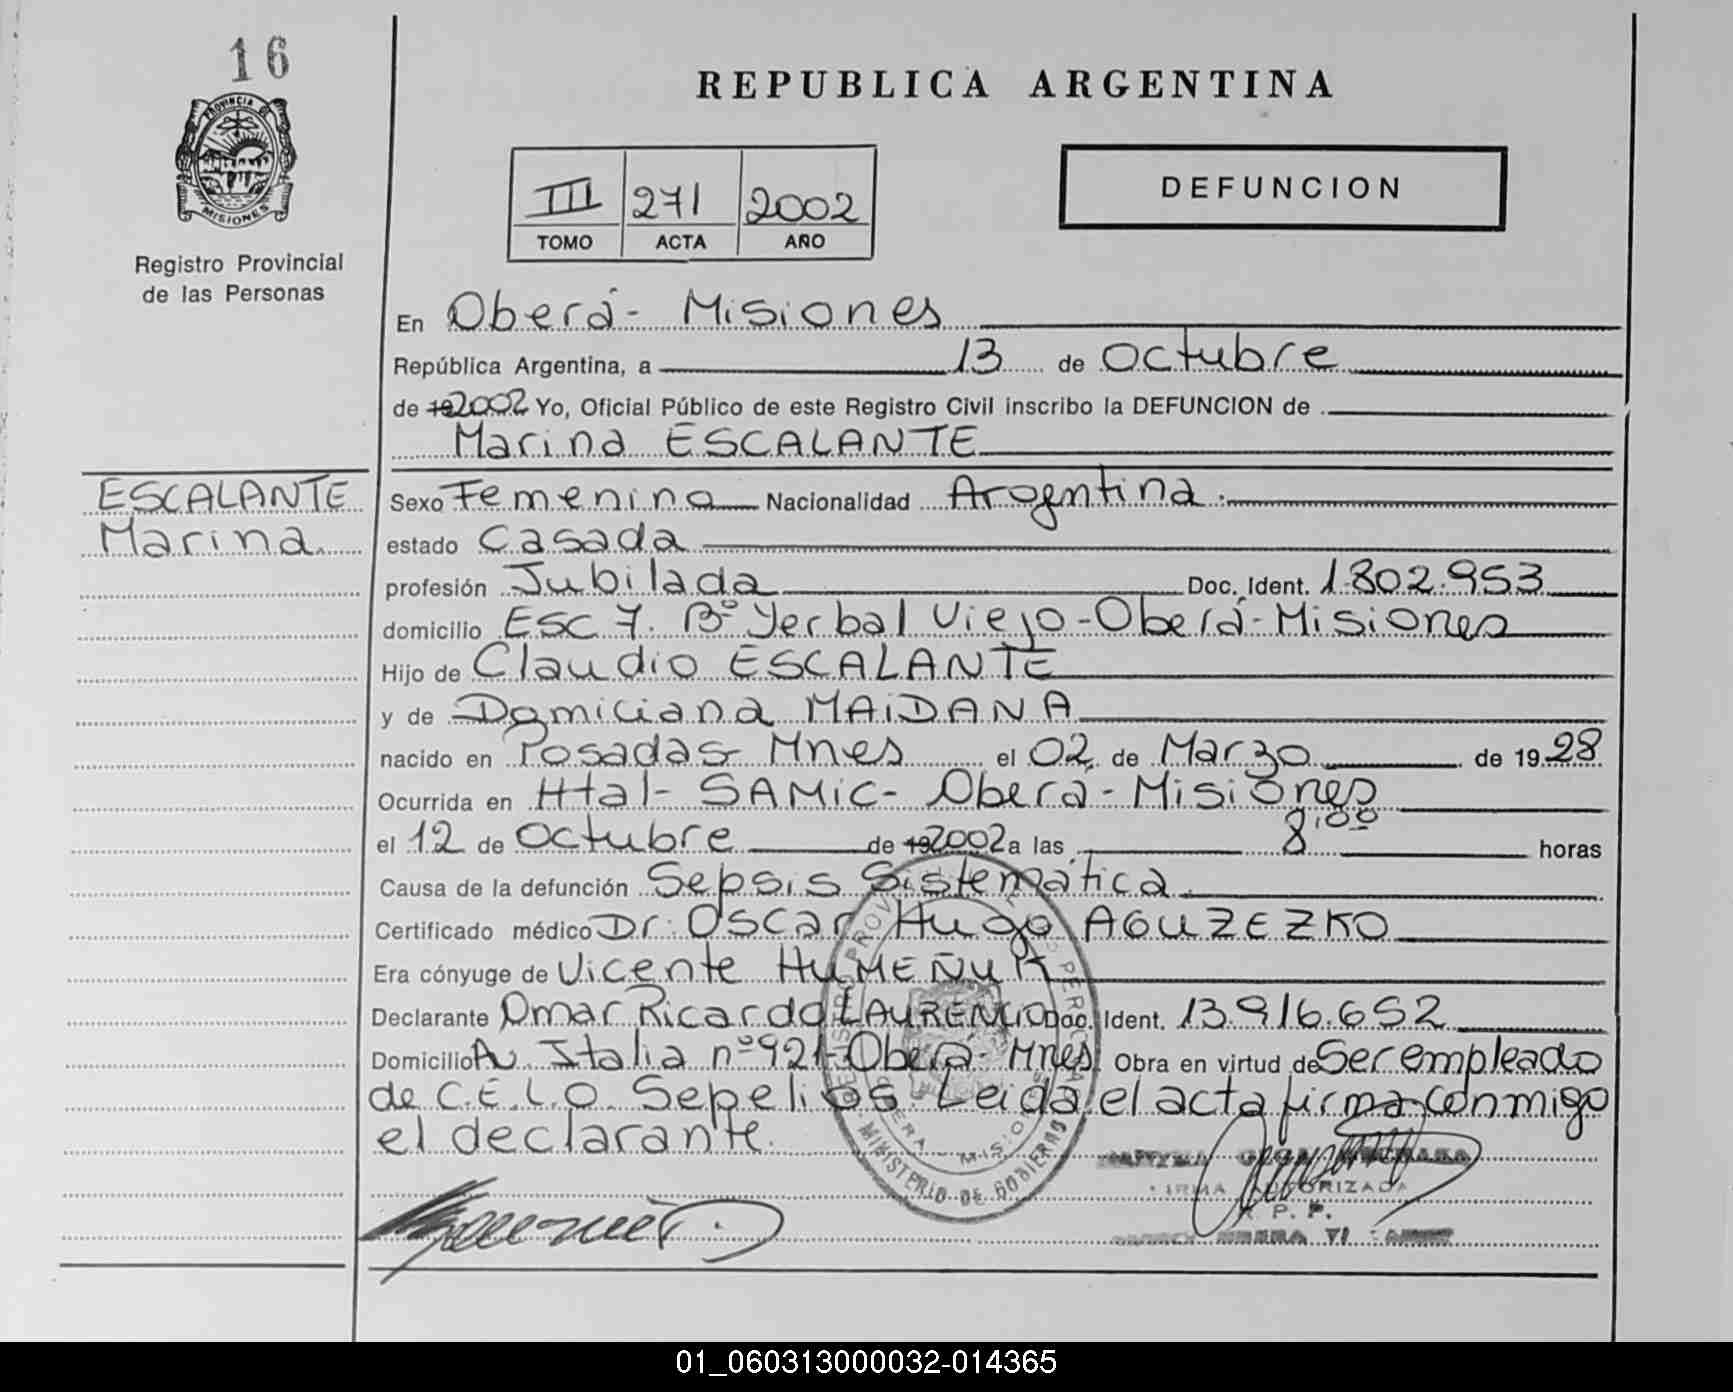 16
PROVINCIA DE
MISIONES
Registro Provincial
de las Personas
REPUBLICA ARGENTINA
III 271 2002
TOMO ACTA AÑO
DEFUNCION
En Oberá - Misiones
República Argentina, a 13 de Octubre
de 192002 Yo, Oficial Público de este Registro Civil inscribo la DEFUNCION de
Marina ESCALANTE
ESCALANTE
Marina
Sexo Femenino Nacionalidad Argentina.
estado Casada
profesión Jubilada Doc. Ident. 1.802.953
domicilio Esc 7. Bº Yerbal Viejo - Oberá - Misiones
Hijo de Claudio ESCALANTE
y de Domiciana MAiDANA
nacido en Posadas Mnes el 02 de Marzo de 1928
Ocurrida en Htal - SAMiC - Oberá - Misiones
el 12 de Octubre de 192002 a las 8,00 horas
Causa de la defunción Sepsis Sistemática
Certificado médico Dr. Oscar Hugo AGUZEZKO
Era cónyuge de Vicente HUMEÑUK
Declarante Omar Ricardo LAURENCIO Doc. Ident. 13.916.652
Domicilio Av. Italia nº 921 - Oberá - Mnes. Obra en virtud de Ser empleado
de C.E.L.O. Sepelios. Leida el acta firma conmigo
el declarante.
MISIONES
MINISTERIO DE GOBIERNO
FIRMA AUTORIZADA
R. P. P.
01_060313000032-014365